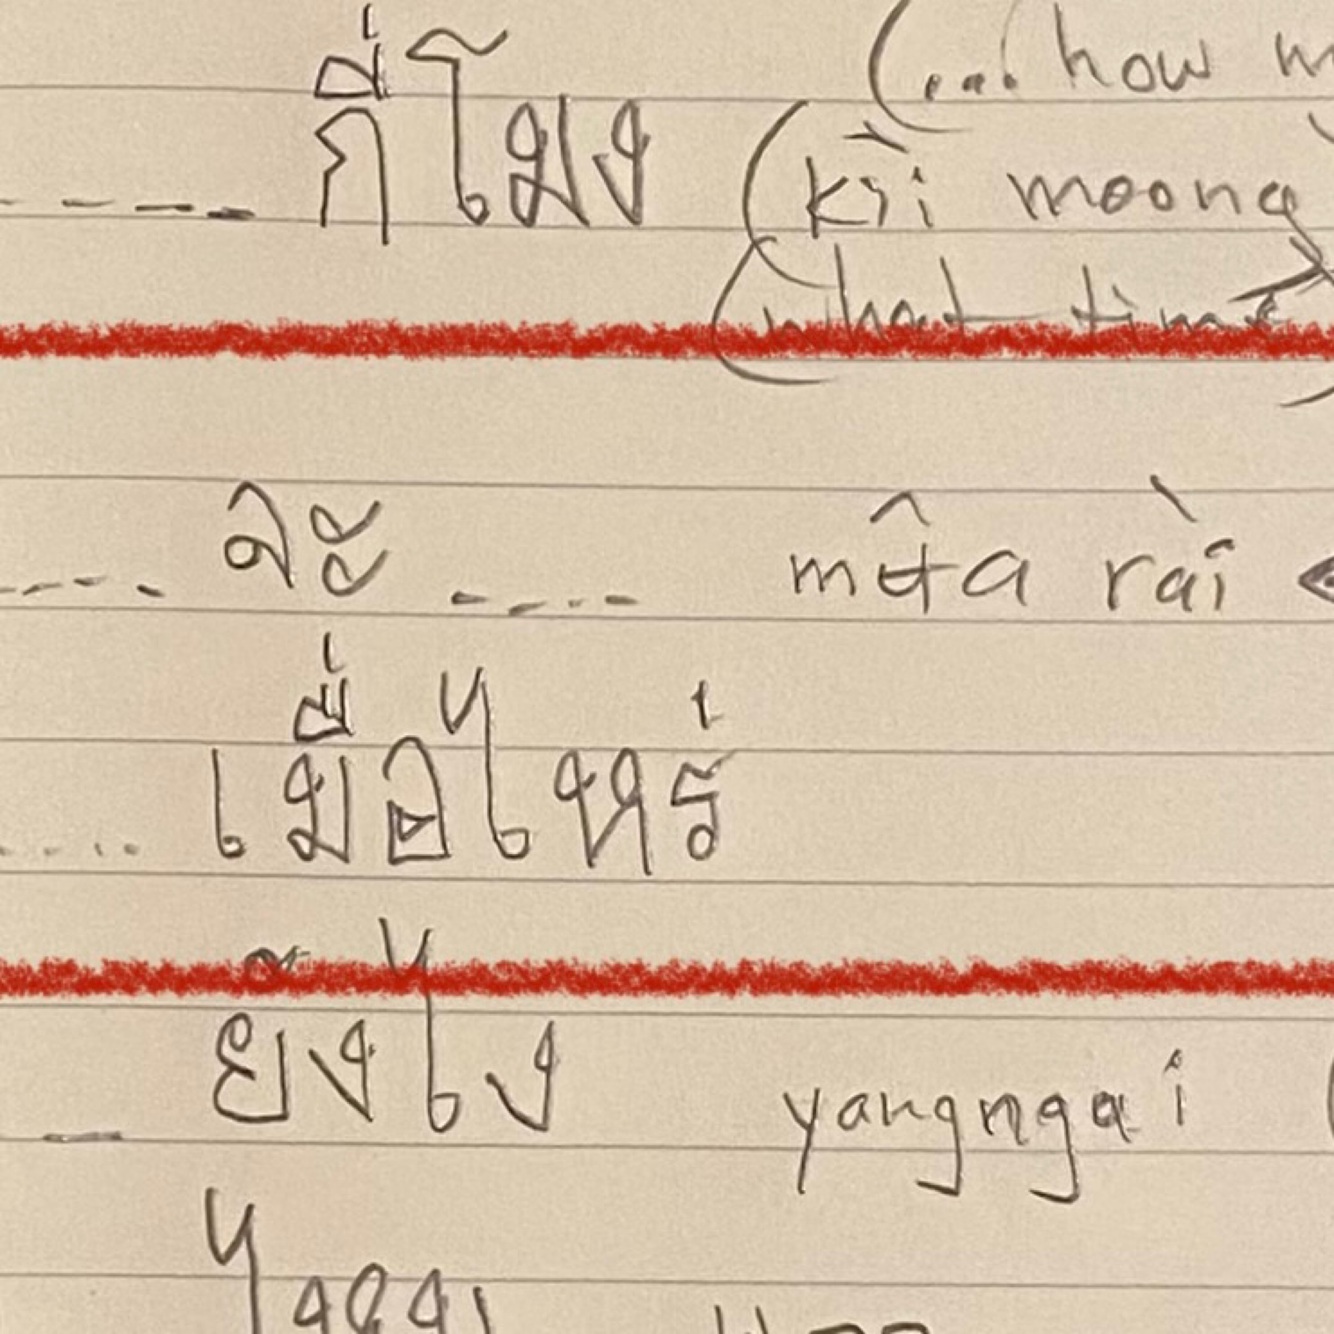 (... how
---- กี่โมง (kìi moong
(what time
---- จะ ---- mêta rài
.... เมื่อไหร่
__ ยังไง yangngai